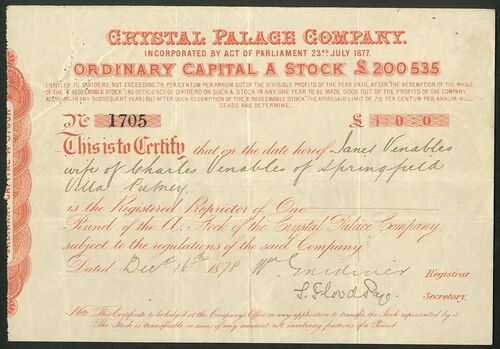 CRYSTAL PALACE COMPANY.
INCORPORATED BY ACT OF PARLIAMENT 23RD JULY 1877.
ORDINARY CAPITAL A STOCK £200535
ENTITLED TO DIVIDEND, NOT EXCEEDING 7½ PER CENTUM PER ANNUM OUT OF THE DIVISIBLE PROFITS OF THE YEAR UNTIL, AFTER THE REDEMPTION OF THE WHOLE
OF THE B REDEEMABLE STOCK (NO DEFICIENCY OF DIVIDEND ON SUCH A STOCK IN ANY ONE YEAR TO BE MADE GOOD OUT OF THE PROFITS OF THE COMPANY
ACCRUING IN ANY SUBSEQUENT YEAR) BUT AFTER SUCH REDEMPTION OF THE B REDEEMABLE STOCK THE AFORESAID LIMIT OF 7½ PER CENTUM PER ANNUM WILL
CEASE AND DETERMINE.
No 1705 £ 1 0 0
This is to Certify that on the date hereof Janet Venables
wife of Charles Venables of Springfield
Villa Putney
is the Registered Proprietor of One
Pound of the A. Stock of the Crystal Palace Company,
subject to the regulations of the said Company
Dated Decr 16th 1878 Wm Gardiner Registrar
S. Flood Page Secretary.
Note. This Certificate to be lodged at the Company's Office or any application to transfer the Stock represented by it
The Stock is transferable in sums of any amount not involving fractions of a Pound